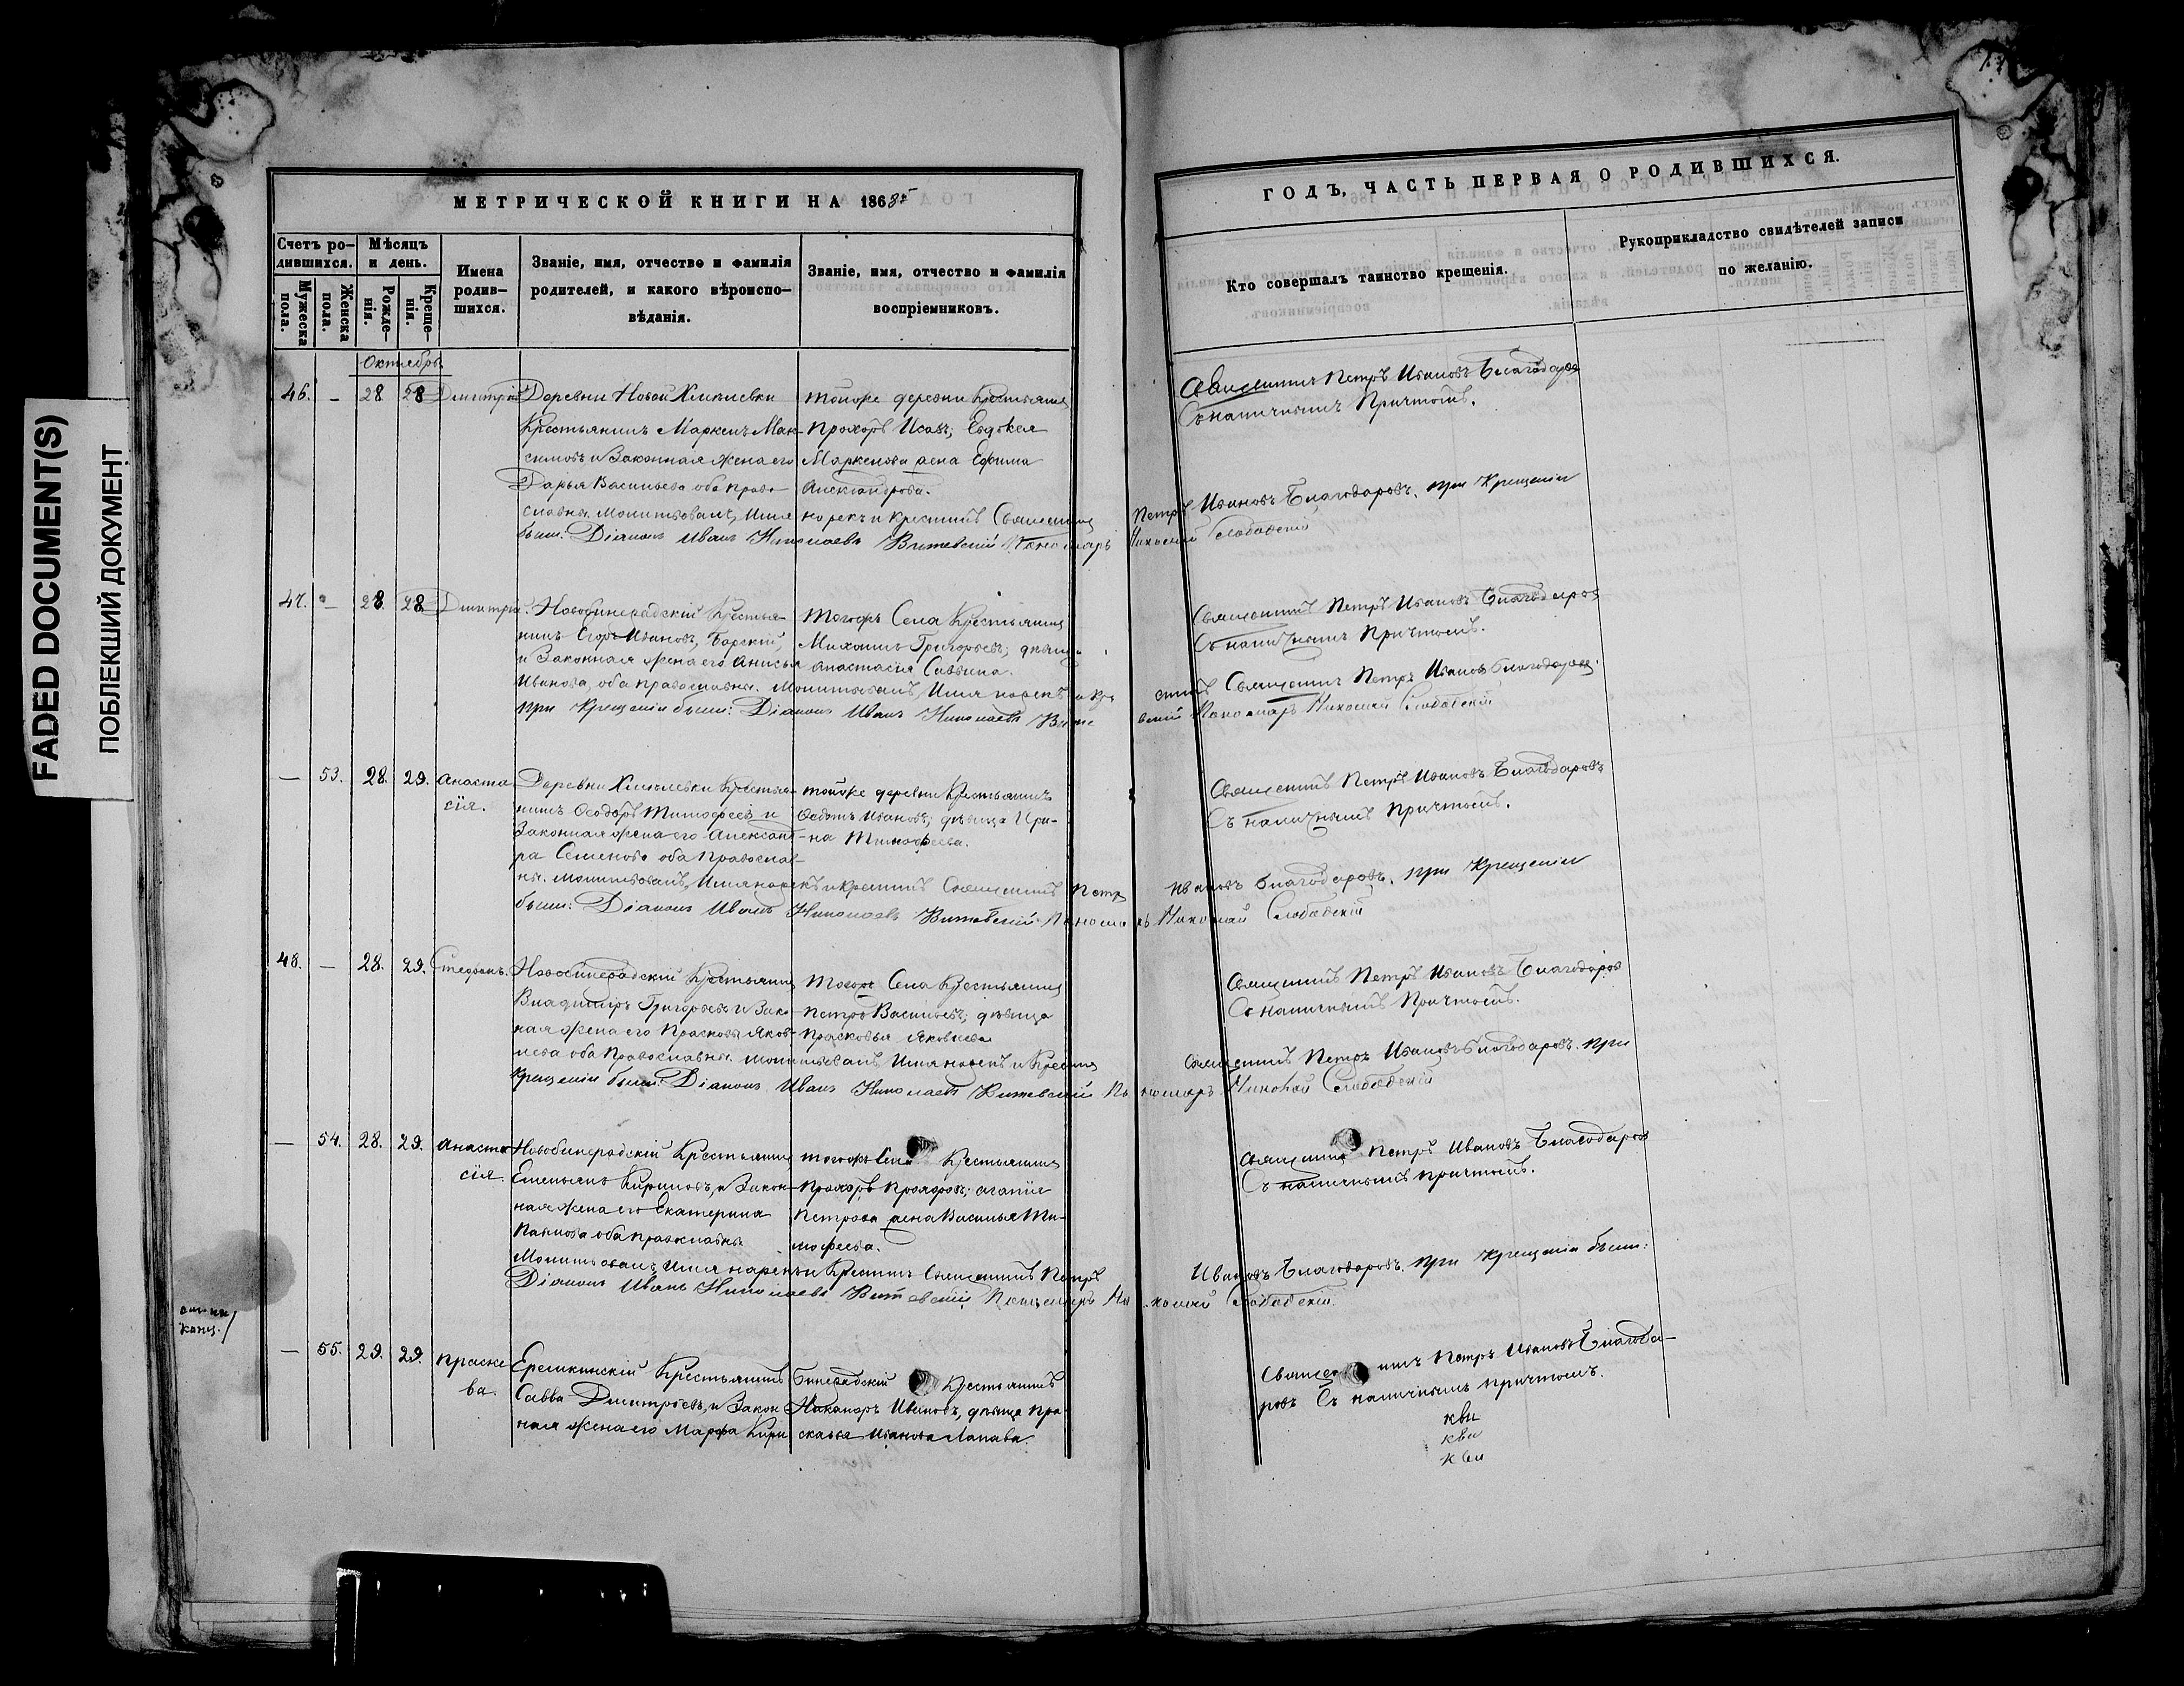 FADED DOCUMENT(S)
ПОБЛЕКШИЙ ДОКУМЕНТ
МЕТРИЧЕСКОЙ КНИГИ НА 186
Счетъ ро-
дившихся.
Мужеска
пола.
Женска
пола.
Мѣсяцъ
и день.
Рожде-
нія.
Креще-
нія.
Имена
родив-
шихся.
Званіе, имя, отчество и фамилія
родителей, и какого вѣроиспо-
вѣданія.
Званіе, имя, отчество и фамилія
воспріемниковъ.
Октябрь
46. - 28 28 Дмитрій
Деревни Новой
Крестьянинъ Маркелъ Мак-
симовъ и Законная жена его
Дарья Васильева оба право-
славны. Молитвовалъ, Имя
нарекъ и крестилъ Священникъ Петръ Ивановъ Благодаровъ. при Крещеніи
были: Діаконъ Иванъ Николаевъ Витевскій Пономарь Николай Слободскій
тойже деревни Крестьянинъ
Прохоръ Исаевъ; Евдокія
Маркелова жена Ефима
Александрова.
Священникъ Петръ Ивановъ Благодаровъ
Съ наличнымъ Причтомъ.
47. - 28. 28 Дмитрій.
Новобинарадскій Крестья-
нинъ Егоръ Ивановъ, Барскій,
и Законная жена его Анисья
Иванова, оба православны. Молитвовалъ, Имя нарекъ и кре
стилъ Священникъ Петръ Ивановъ Благодаровъ.
при Крещеніи были: Діаконъ Иванъ Николаевъ Вите
вскій Пономарь Николай Слободскій
Тогожъ Села Крестьянинъ
Михаилъ Григорьевъ; дѣвица
Анастасія Саввина.
Священникъ Петръ Ивановъ Благодаровъ
Съ наличнымъ Причтомъ.
- 53. 28. 29. Анаста
сія.
Деревни Крестья-
нинъ Ѳеодоръ Тимофеевъ и
Законная жена его Александ-
ра Семенова оба Православ-
ны. Молитвовалъ, Имя нарекъ и крестилъ Священникъ Петръ Ивановъ Благодаровъ. при Крещеніи
были: Діаконъ Иванъ Николаевъ Витевскій Пономарь Николай Слободскій
тойже деревни Крестьянинъ
Ѳедотъ Ивановъ; дѣвица Ири-
на Тимофеева.
Священникъ Петръ Ивановъ Благодаровъ
Съ наличнымъ Причтомъ.
48. - 28. 29. Стефанъ.
Новобинарадскій Крестьянинъ
Владиміръ Григорьевъ и Зако-
ная жена его Прасковья Яков-
лева оба Православны. Молитвовалъ Имя нарекъ и Крестилъ
Священникъ Петръ Ивановъ Благодаровъ. при
Крещеніи были: Діаконъ Иванъ Николаевъ Витевскій Пономарь Николай Слободскій
Тогоже Села Крестьянинъ
Петръ Васильевъ; дѣвица
Прасковья Яковлева
Священникъ Петръ Ивановъ Благодаровъ
Съ наличнымъ Причтомъ.
- 54. 28. 29. Анаста
сія.
Новобинарадскій Крестьянинъ
Емельянъ Кириловъ, и Закон-
ная жена его Екатерина
Павлова оба православны
Молитвовалъ, Имя нарекъ и Крестилъ Священникъ Петръ Ивановъ Благодаровъ. при Крещеніи были:
Діаконъ Иванъ Николаевъ Витевскій Пономарь Николай Слободскій.
тогожъ Села Крестьянинъ
Прохоръ Прохоровъ; Агапія
Петрова жена Василья Ти-
мофеева.
Священникъ Петръ Ивановъ Благодаровъ
Съ наличнымъ причтомъ.
- 55. 29. 29. Праске
ва.
Еремкинскій Крестьянинъ
Савва Дмитріевъ, и Закон
ная жена его Марфа Кири
Бинарадскій Крестьянинъ
Никаноръ Ивановъ, дѣвица Пра
сковья Иванова
Священникъ Петръ Ивановъ Благода-
ровъ Съ наличнымъ причтомъ.
ГОДЪ, ЧАСТЬ ПЕРВАЯ О РОДИВШИХСЯ.
Кто совершалъ таинство крещенія.
Рукоприкладство свидѣтелей записи
по желанію.